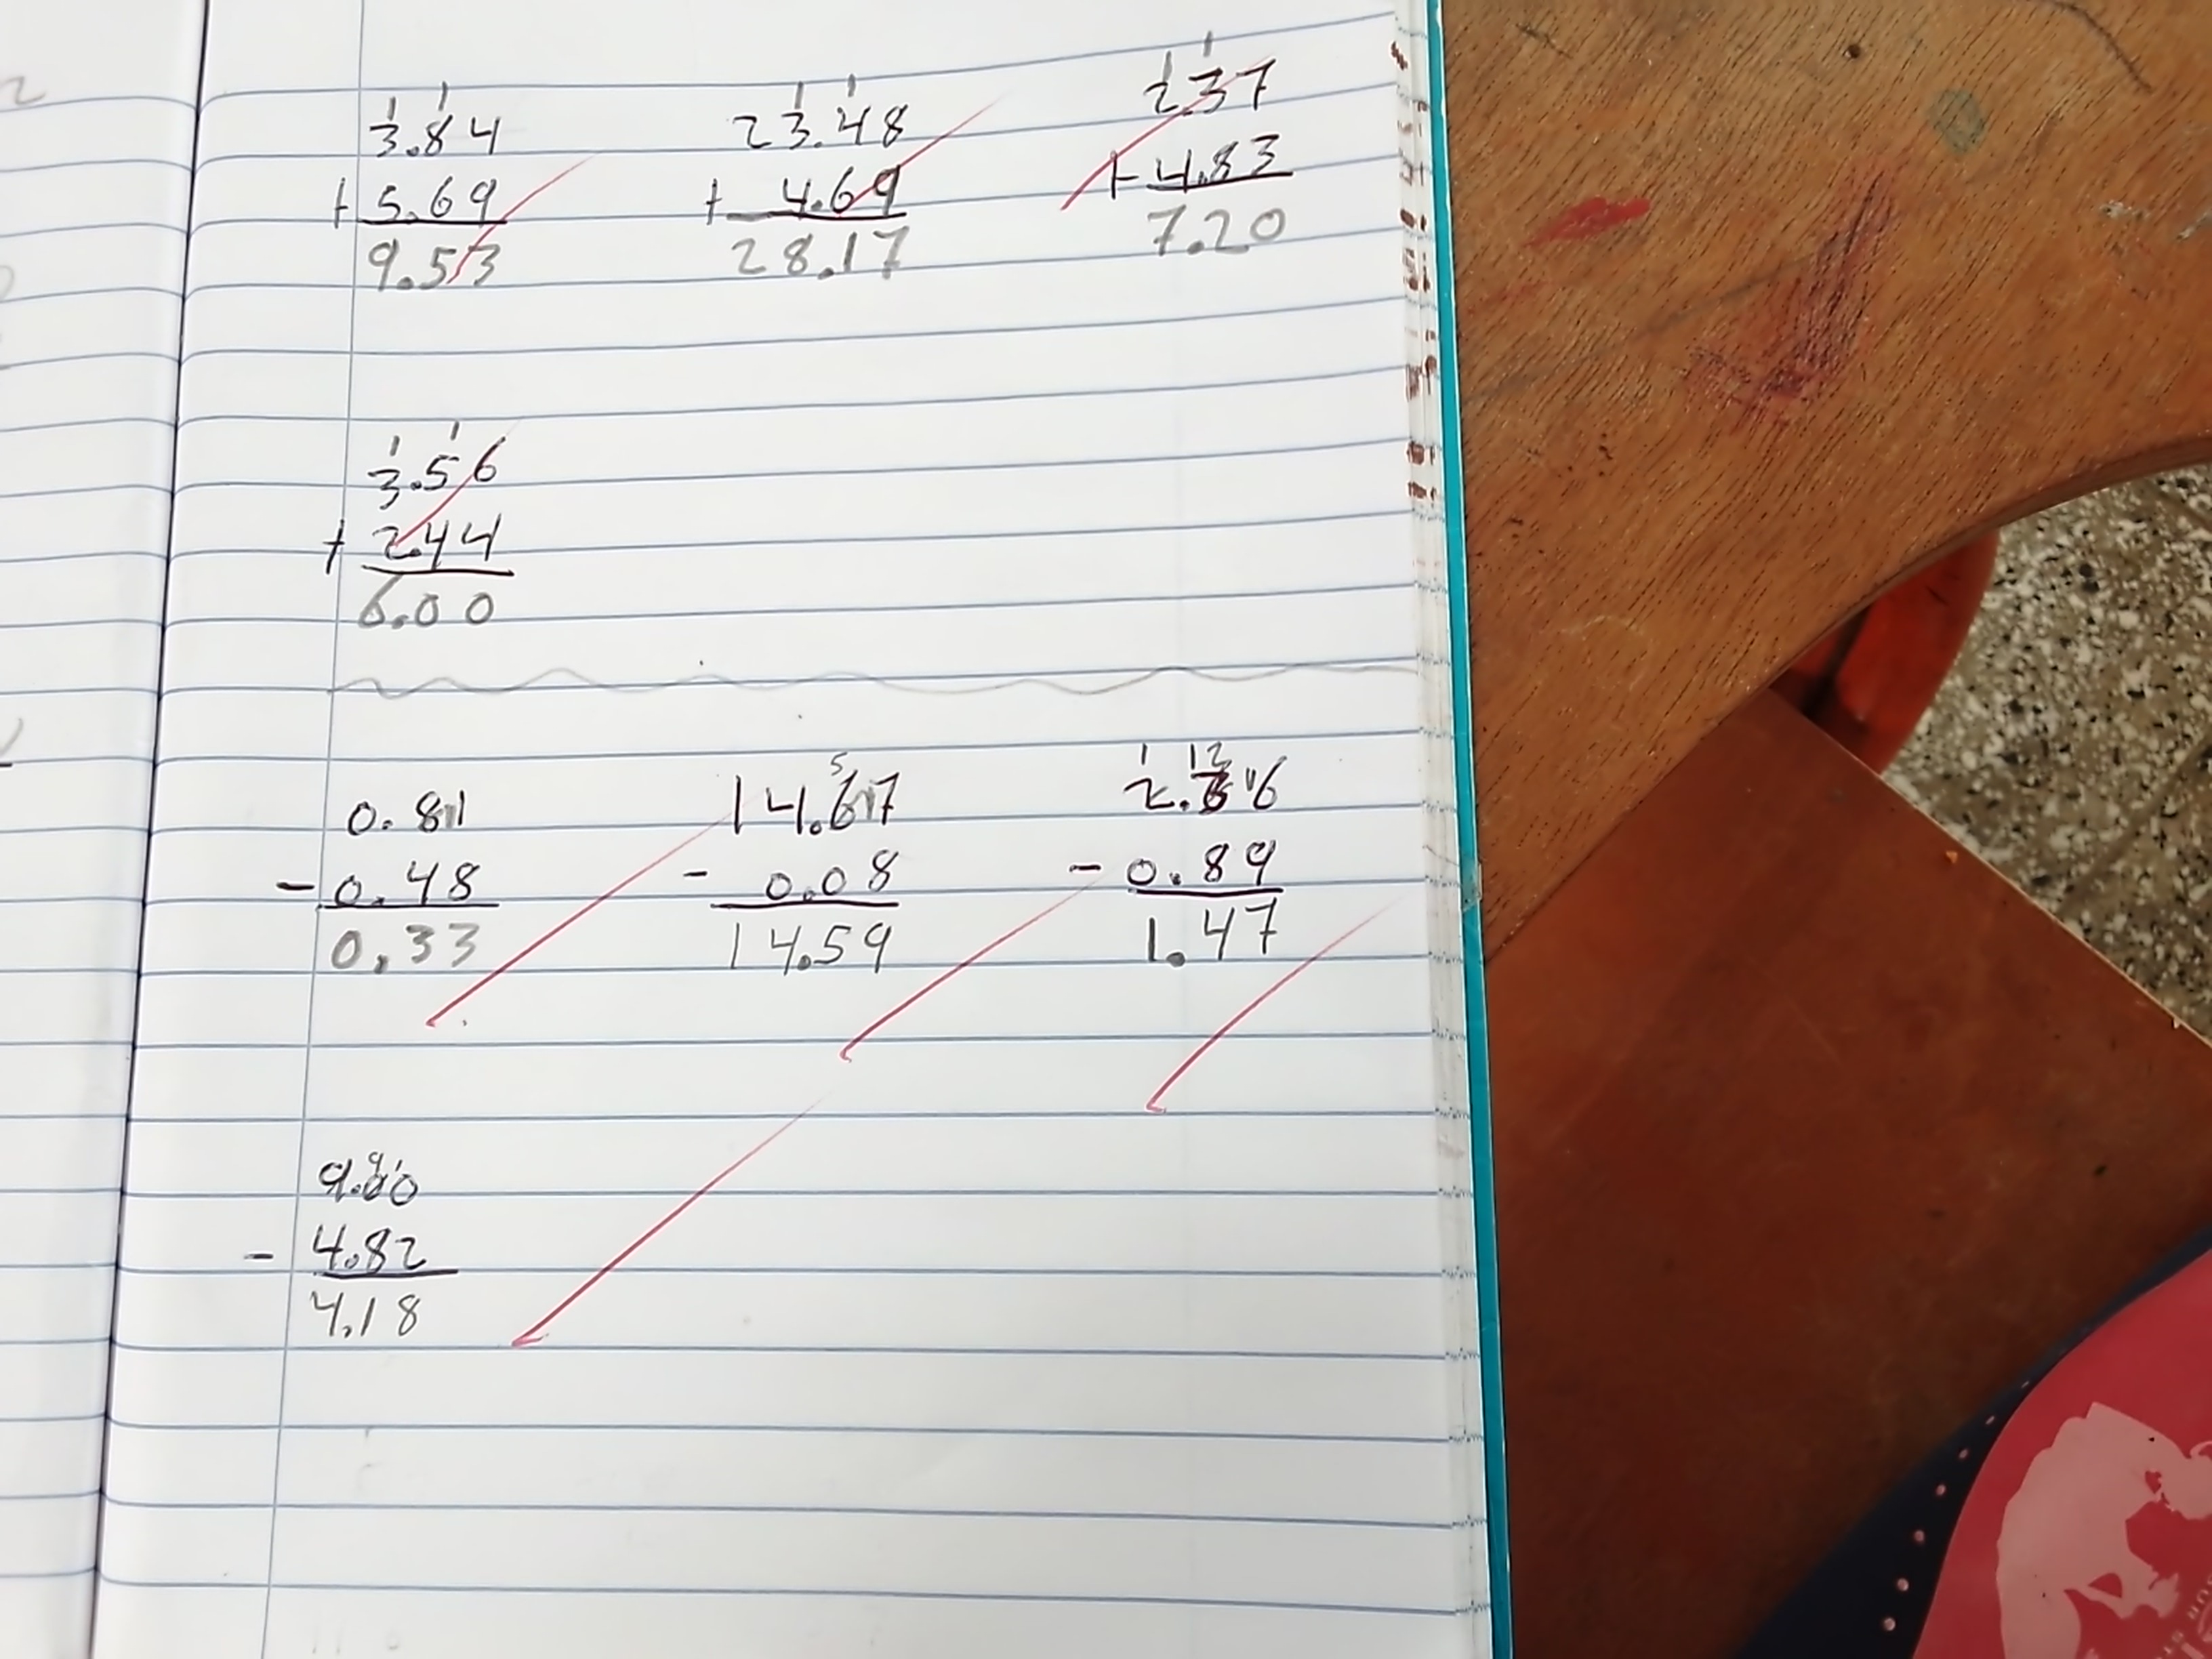 1 1 1 1 1 1
3.84 23.48 2.37
+ 5.69 + 4.69 + 4.83
9.53 28.17 7.20
1 1
3.56
+ 2.44
6.00
5 1 12
0.811 14.617 2.3 16
- 0.48 - 0.08 - 0.89
0.33 14.59 1.47
9 1
9.00
- 4.82
4.18